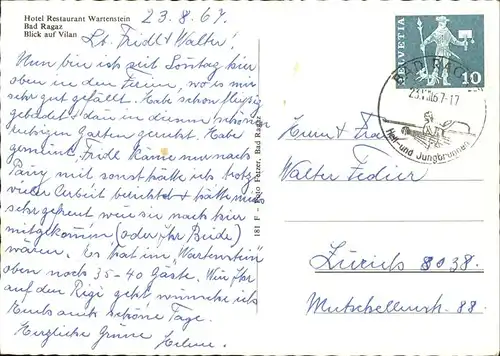 Hotel Restaurant Wartenstein
Bad Ragaz
Blick auf Vilan
23.8.67.
Lb. Fridl + Walter!
Nun bin ich seit Sonntag hier
oben in den Ferien, wo es mir
sehr gut gefällt. Habe schon fleissig
gebadet + dann in diesem schönen
Garten geruht. Habe
gemeint, Fridl käme nur nach
mit sonst hätte ich trotz
vieler Arbeit berichtet + hätte mich
sehr gefreut wenn sie nach hier
mitgekommen (oder Ihr Beide)
wären. Es hat im "Wartenstein"
oben noch 35-40 Gäste. Wenn Ihr
auf den Rigi geht wünsche ich
Euch auch schöne Tage.
Herzliche Grüsse Helene.
181 F - Foto Fetzer, Bad Ragaz
HELVETIA
10
BAD RAGAZ
23.VIII.67-17
Heil- und Jungbrunnen
Herrn + Frau
Walter Fedier
Zürich 8038.
Mutschellenstr. 88.